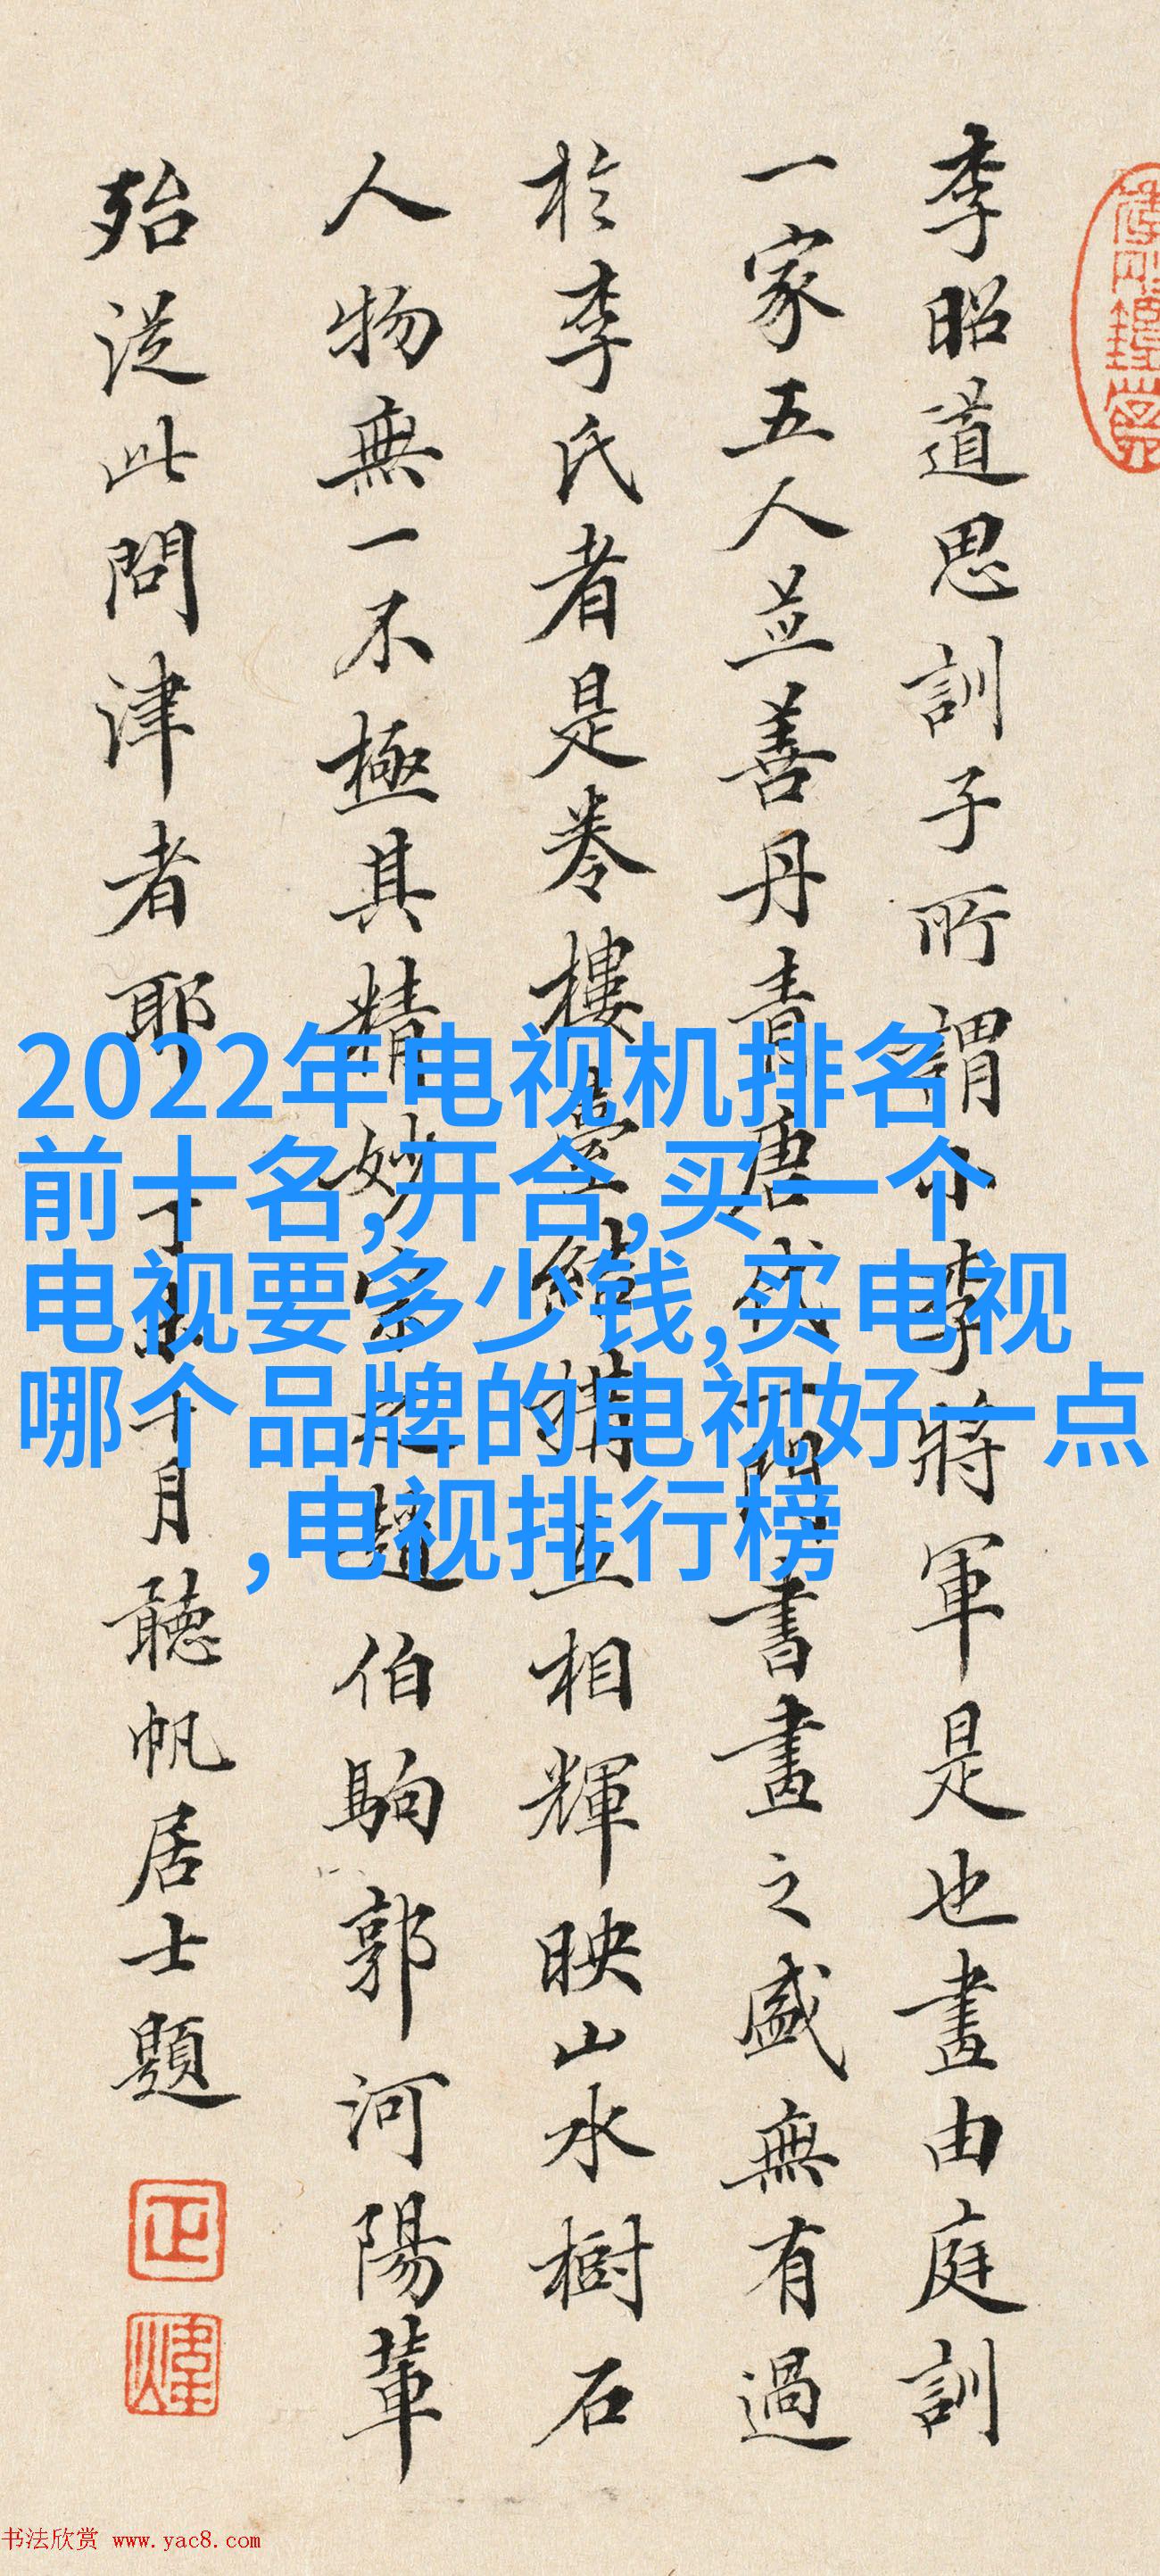 李昭道思訓子所謂小李將軍是也畫由庭訓
一家五人並善丹青唐代一門書畫之盛無有過
於李氏者是卷樓臺結構互相輝映山水樹石
人物無一不極其精妙宗之趙伯駒郭河陽輩
殆從此問津者耶
年十月聽帆居士題
正
煒
2022年电视机排名
前十名,开合,买一个
电视要多少钱,买电视
哪个品牌的电视好一点
,电视排行榜
书法欣赏 www.yac8.com